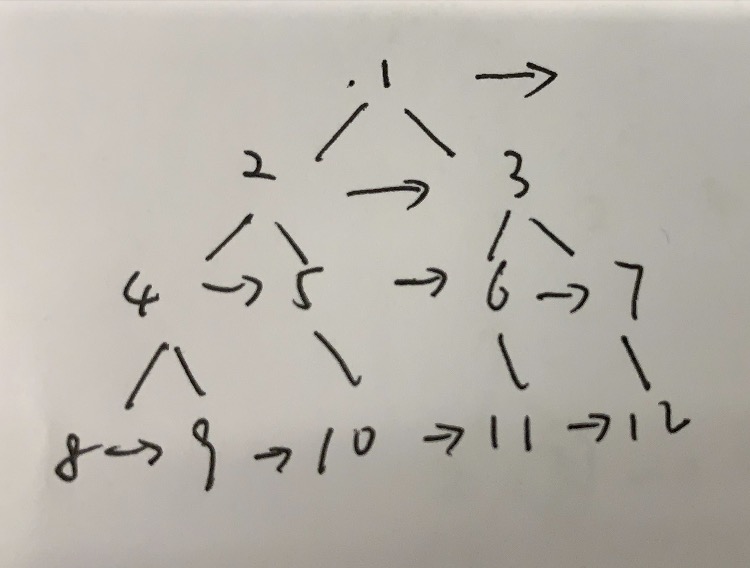 .1 →
2 → 3
4 → 5 → 6 → 7
8 → 9 → 10 → 11 → 12